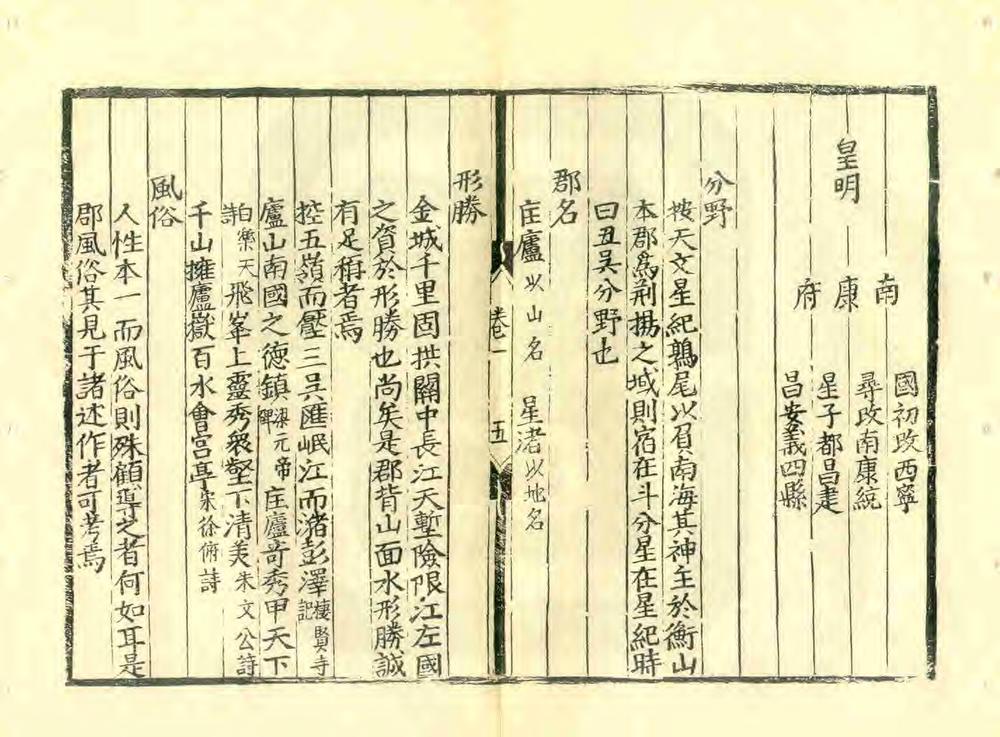 皇明
南康府
國初改西寧
尋改南康統
星子都昌建
昌安義四縣
分野
按天文星紀鶉尾以負南海其神主於衡山
本郡為荆揚之域則宿在斗分星在星紀時
曰丑吳分野也
郡名
匡廬以山名 星渚以地名
卷一 五
形勝
金城千里固拱關中長江天塹險限江左國
之資於形勝也尚矣是郡背山面水形勝誠
有足稱者焉
控五嶺而壓三吳匯岷江而瀦彭澤棲賢寺記
廬山南國之德鎮梁元帝碑匡廬奇秀甲天下
白樂天飛峯上靈秀衆壑下清美朱文公詩
千山擁廬嶽百水會宫亭宋徐俯詩
風俗
人性本一而風俗則殊顧導之者何如耳是
郡風俗其見于諸述作者可考焉